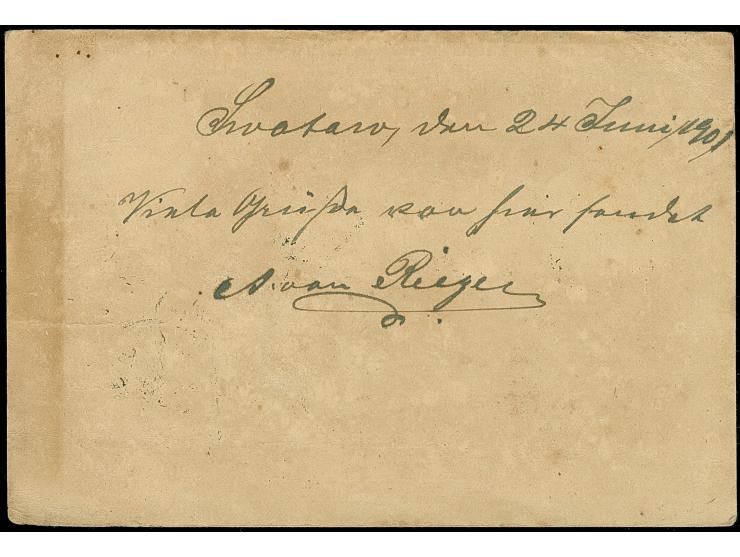 Swatow, den 24 Juni 1901
Viele Grüße von hier sendet
A. van Riegen